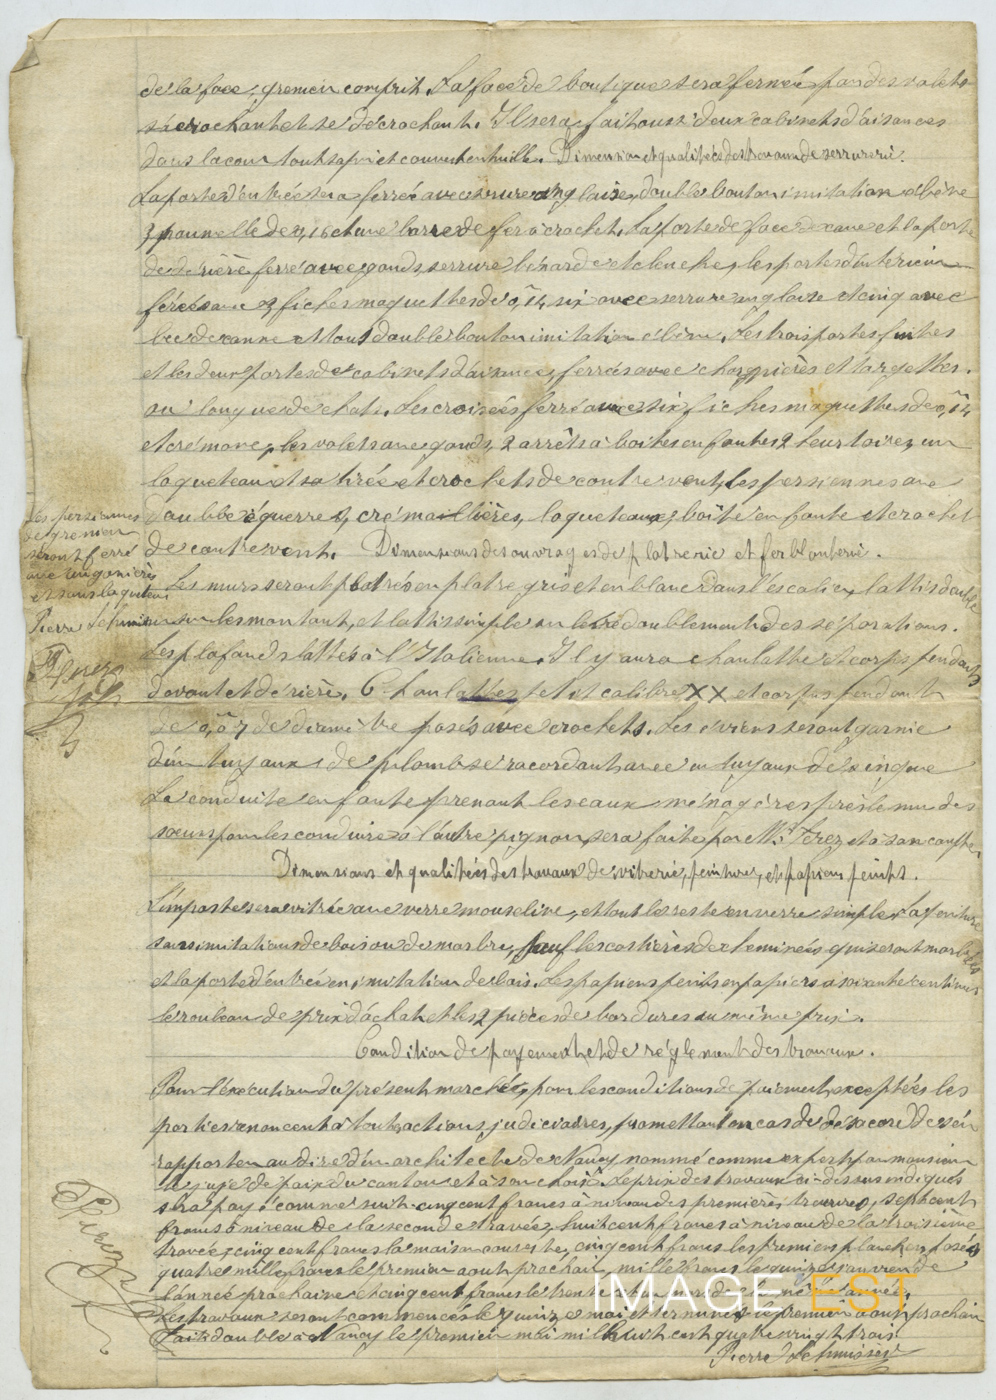 de la face, grenier comprit. La face de boutique sera fermée par des volets
s'acrochant et se décrochant. Il sera fait aussi deux cabinets d'aisances
dans la cour tout sapin et couvert en tuille. Dimension et qualitées des travaux de serrurerie.
La porte d'entrée sera ferrée avec serrure anglaise, double bouton imitation ébène
3 paumelle de 0,16 et une barre de fer à crochet. La porte de face de cave et la porte
de dérière ferré avec gonds, serrure bénarde et clenche, les portes d'intérieur
férées avec 3 fiches maquettes de 0,m14, six avec serrure anglaise et cinq avec
bec de canne et tout double bouton imitation ébène. Les trois portes fortes
et les deux portes de cabinets d'aisances, ferrés avec charnières et targettes
ou longue de chats. Les croisées ferré avec six fiches maquettes de 0,m14
et crémone, les volets avec gonds, 2 arrêts à boîtes en fontes 2 heurtoires, un
loqueteau et sa tirée et crochets de contrevent, les persiennes avec
double équerres, crémaillières, loqueteaux, boîte en fonte et crochet
de contrevent. Dimensions des ouvrages de platrerie et ferblanterie.
Les persiennes
de grenier
seront ferré
avec
et sans loqueteau
Pierre Schmisser
Les murs seront platrés en platre gris et en blanc dans l'escalier, lattis double
sur les montant, et lattis simple sur le doublement des séparations.
Les plafonds lattés à l'Italienne. Il y aura chanlatte et corps pendants
devant et dérière. Chanlattes petit calibre XX et corps pendant
de 0,m07 de diamètre posés avec crochets. Les éviers seront garnie
d'un tuyaux de plomb se racordant avec un tuyaux de zingue
La conduite en fonte prenant les eaux ménagères près le mur des
sœurs pour les conduire à l'autre pignon, sera faite par Mr Ferez et à son compte.
Dimensions et qualitées des travaux de vitrerie, peinture, et papiers peints.
L'imposte sera vitrée avec verre mousseline, et tout le reste en verre simple. La peinture
sans imitations de bois ou de marbre, sauf les costières de cheminées qui seront marbrées
et la porte d'entrée en imitation de bois. Les papiers peints en papiers à soixante centimes
le rouleau de prix d'achat et les 2 pièces de bordures au même prix.
Condition de payement et de réglement des travaux.
Pour l'exécution du présent marché, pour les conditions de paiement exceptées les
parties renoncent à tout actions judiciaires, promettant en cas de désacord de s'en
rapporter au dire d'un architecte de Nancy nommé comme expert par monsieur
le juge de paix du canton et à son choix. Le prix des travaux ci-dessus indiqués
sera payé comme suit: cinq cent francs à niveau des premières travées, sept cent
francs à niveau de la seconde travée, huit cent francs à niveau de la troisième
travée, cinq cent francs la maison couverte, cinq cent francs les premiers planchers posés
quatre mille francs le premier aout prochain, mille francs le quinze janvier de
l'année prochaine et cinq cent francs le trente et un mars de la même année.
Les travaux seront commencés le quinze mai et terminés le premier aout prochain
Fait double à Nancy le premier mai mil huit cent quatre vingt trois
Pierre Schmisser
IMAGE EST